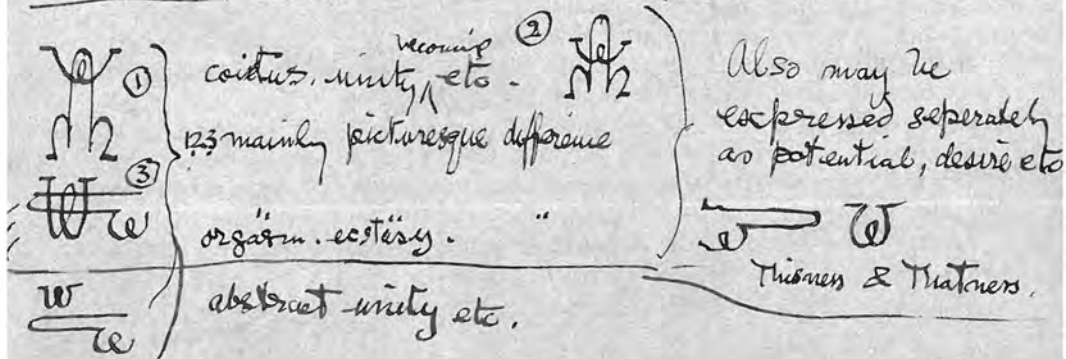 ①
coitus, unity, becoming etc. ②
1 2 3 mainly picturesque difference
③
" orgasm. ecstasy. "
abstract unity etc.
Also may be
expressed seperately
as potential, desire etc
Thisness & Thatness.